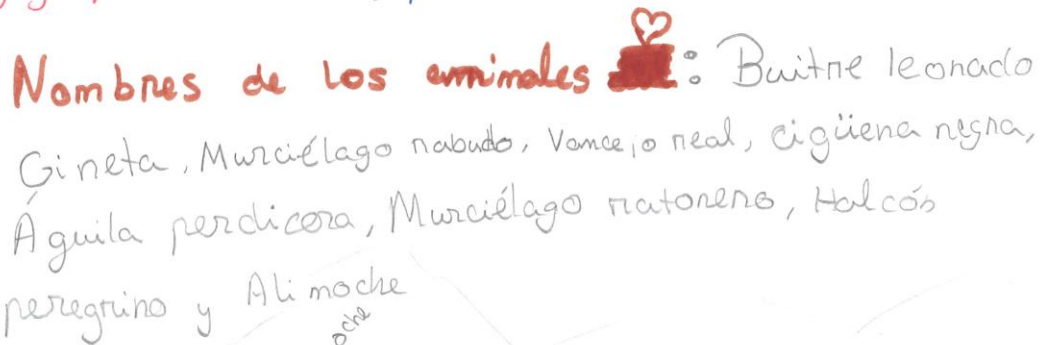 Nombres de los animales : Buitre leonado
Gineta, Murciélago rabudo, Vencejo real, cigüena negra,
Águila perdicera, Murciélago ratonero, Halcón
peregrino y Alimoche
oche